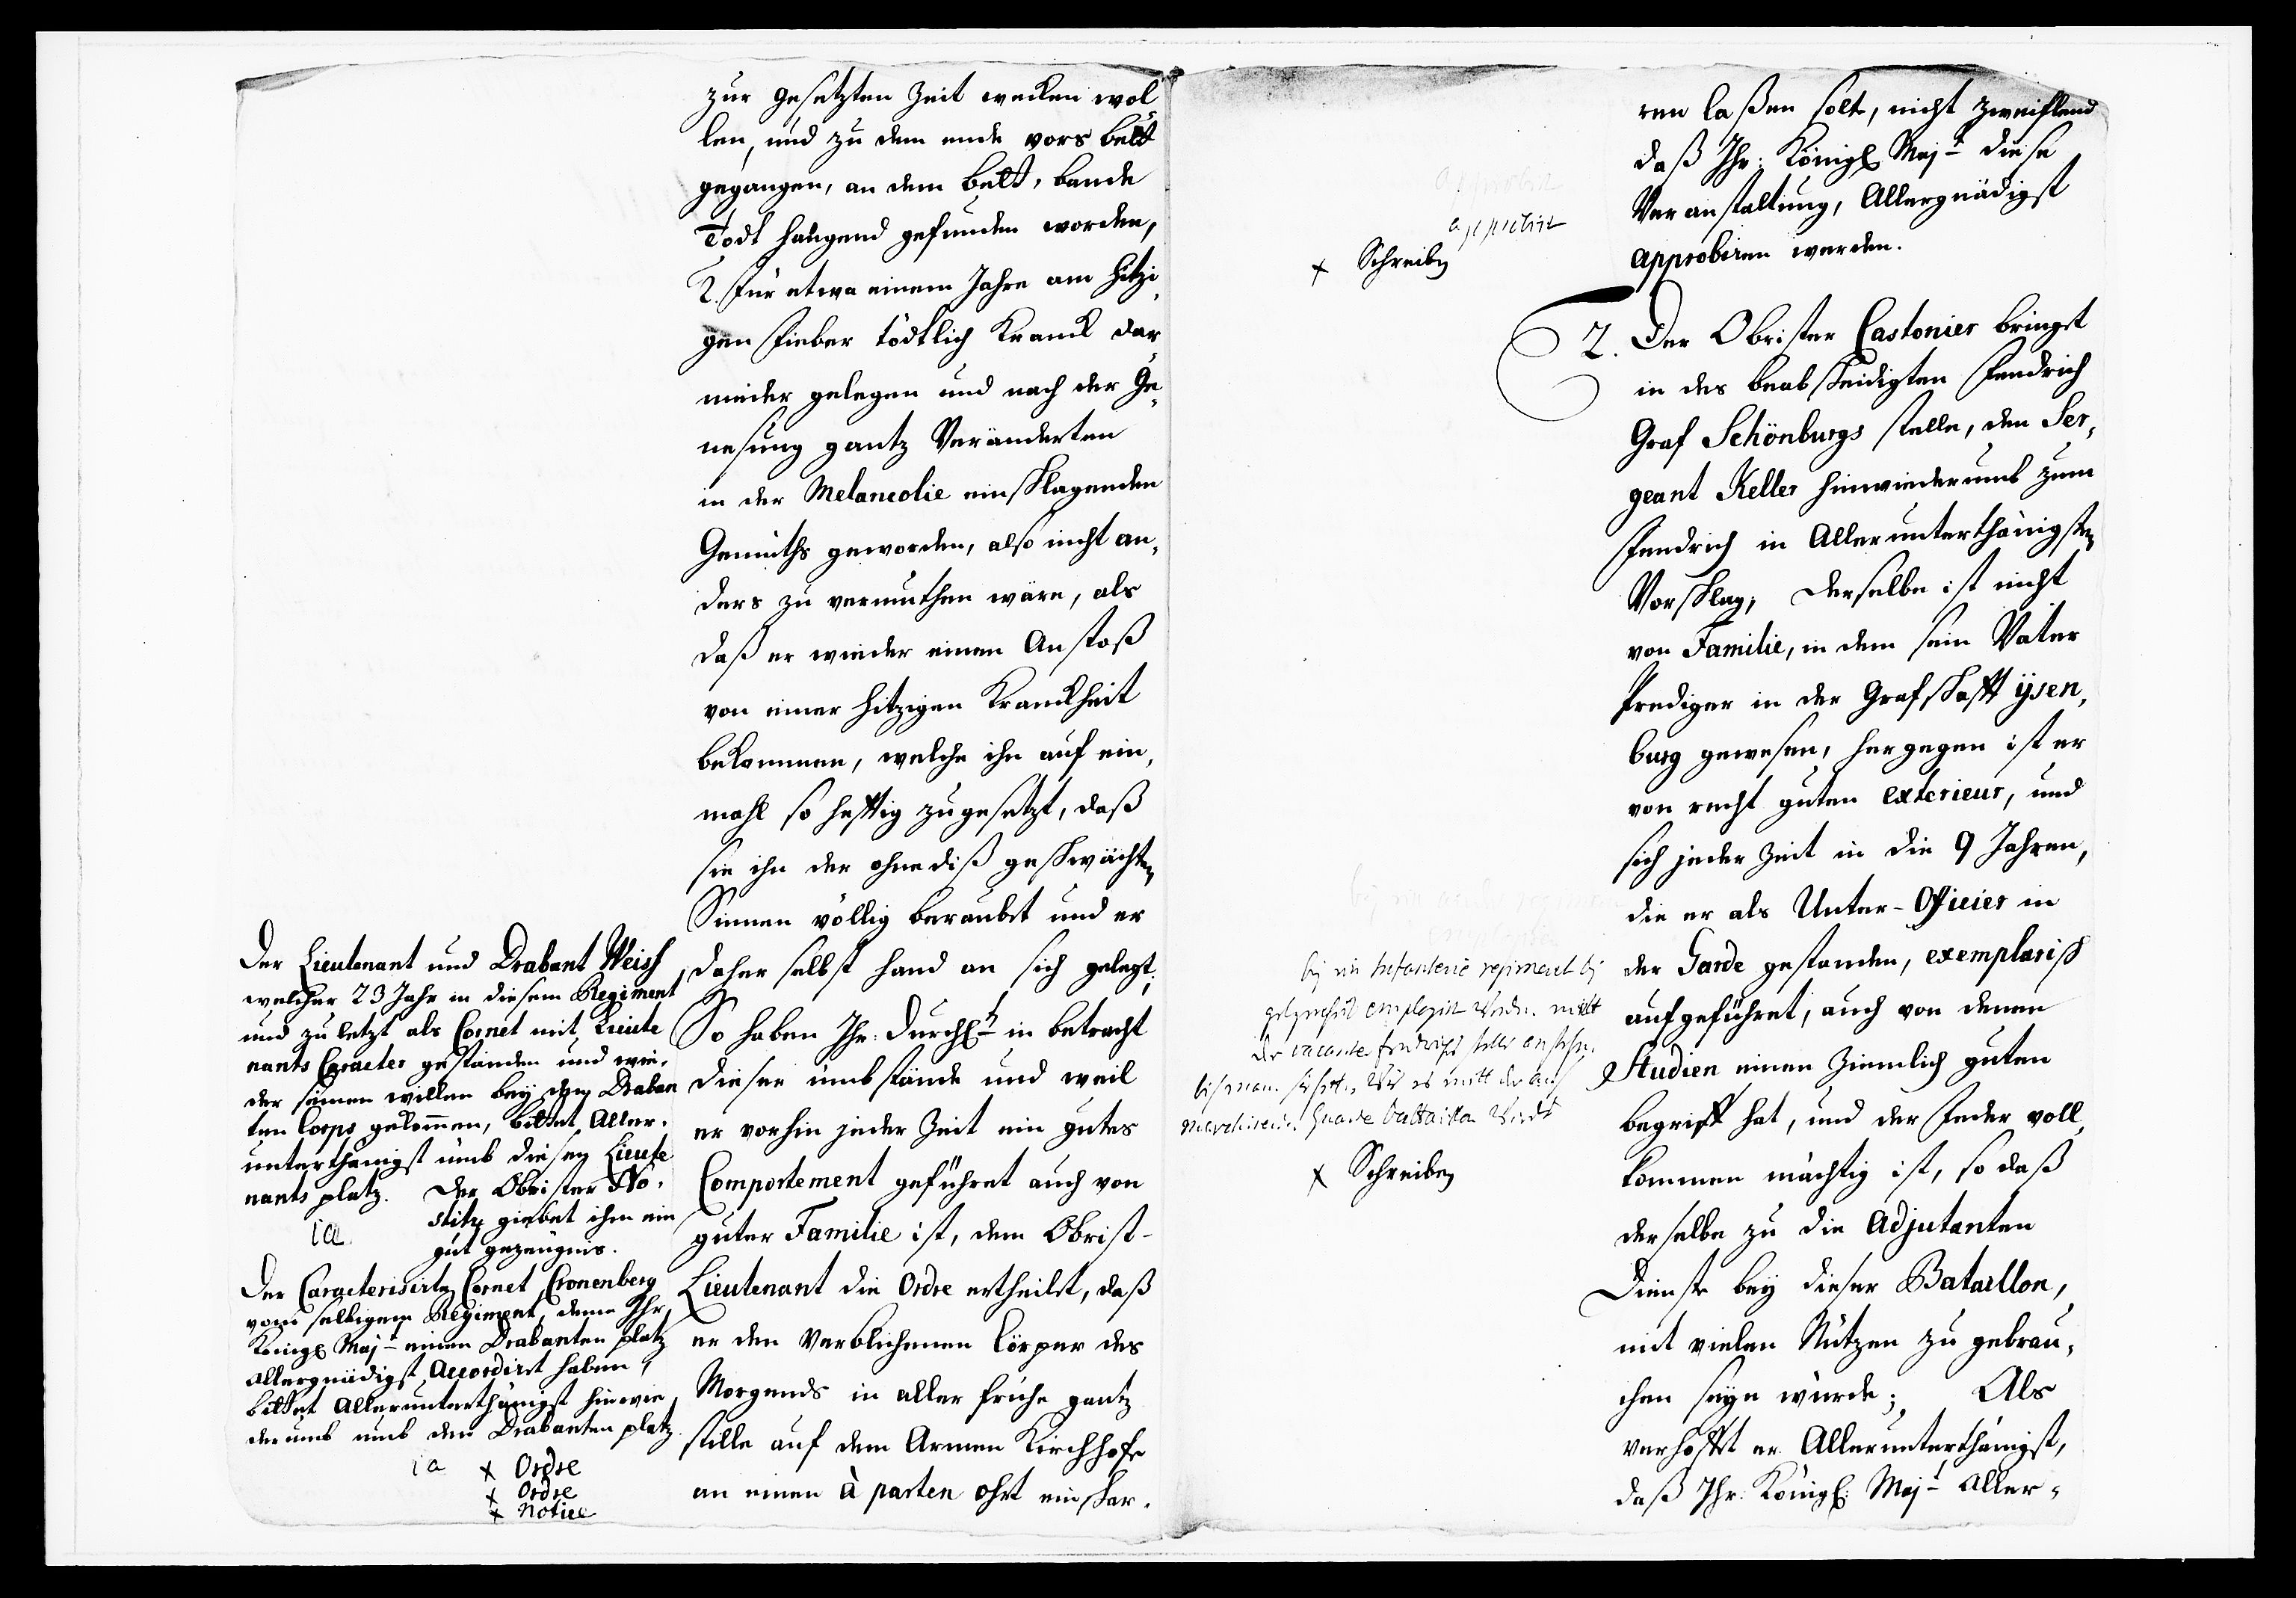 zur gesetzten Zeit wecken wol
len, und zu dem ende vors bett
gegangen, an dem bett, bande
Todt hangend gefunden worden,
für etwa einem Jahre am hitzi,
gen Fieber tödtlich Kranck dar
nieder gelegen und nach der Ge,
nesung gantz Veränderten
in der Melancolie einschlagenden
Gemüths geworden, also nicht an,
ders zu vermuthen wäre, als
daß er wieder einen Anstoß
von einer hitzigen Kranckheit
bekommen, welche ihn auf ein,
mahl so hefftig zugesetzt, daß
sie ihn der ohne diß geschwächten
Sinnen völlig beraubet und er
daher selbst hand an sich gelegt;
So haben Ihr: Durchl: in betracht
dieser umbstände und weil
er vorhin jeder Zeit ein gutes
Comportement geführet auch von
guter Familie ist, dem Obrist-
Lieutenant die Ordre ertheilet, daß
er den Verblichenen Cörper des
Morgends in aller frühe gantz
stille auf dem Armen Kirchhofe
an einen à parten ohrt einschar,
Der Lieutenant und Drabant Weiss
welcher 23 Jahr in diesem Regiment
und zu letzt als Cornet mit Lieute
nants Caracter gestanden und wie,
der seinen willen bey dem Draban
ten Corps gekommen, bittet Aller,
unterthänigst umb diesen Lieute
nants platz. Der Obrister No,
stitz giebet ihm ein
ia
gut gezeugnis.
Der Caracterisirte Cornet Cronenberg
vom selbigem Regiment, deme Ihr
Königl Majt einen Drabanten platz
allergnädigst Accordiret haben,
bittet Allerunterthänigst hinwie,
derumb umb den Drabanten platz.
ia x Ordre
x Ordre
x Notice
ren laßen solte, nicht zweiflend
daß Ihr: Königl Majt diese
Veranstaltung, Allergnädigst
approbiren werden.
approbirt
x Schreiben
2. Der Obrister Castonier bringet
in des beabscheidigten Fendrich
Graf Schönburgs stelle, den Ser,
geant Keller hinwiederumb zum
Fendrich in Allerunterthänigsten
Vorschlag; Derselbe ist nicht
von Familie, in dem sein Vater
Prediger in der Grafschafft ÿsen,
burg gewesen, hergegen ist er
von recht guten exterieur, und
sich jeder Zeit in die 9 Jahren,
die er als Unter-Officier in
der Garde gestanden, exemplarisch
aufgeführet, auch von denen
Studien einen Ziemlich guten
begriff hat, und der Feder voll,
kommen mächtig ist, so daß
derselbe zu die Adjutanten
Dienste bey dieser Bataillon,
mit vielen Nutzen zu gebrau,
chen seyn würde; Als
verhofft er Allerunterthänigst,
daß Ihr: Königl: Majt Aller,
bey ein Infanterie regiment
employirt werden
der vacante fendrichs stelle
bis man siehet, wie es mitt der aus
marchirenden Guarde Battaillon wird
x Schreiben